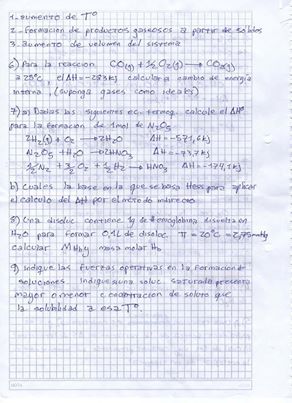 1-aumento de T°
2-Formación de productos gaseosos a partir de solidos
3. aumento de volumen del sistema
6) Para la reaccion CO(g) + 1/2 O2(g) → CO2(g)
a 25°C, el ΔH = -283 kJ calcular a cambio de energía
interna, (suponga gases como ideales)
7) a) Dadas las siguientes ec. termoq. calcule el ΔH°
para la formacion de 1mol de N2O5
2H2(g) + O2 → 2H2O ΔH = -571,6 kJ
N2O5 + H2O → 2HNO3 ΔH = -73,7 kJ
1/2 N2 + 3/2 O2 + 1/2 H2 → HNO3 ΔH = -174,1 kJ
b) Cuales la base en la que se basa Hess para aplicar
el calculo del ΔH por el metodo indirecto
8) Una disoluc contiene 1g de Hemoglobina disuelta en
H2O para formar 0,1L de disoluc π = 20°C = 2,75mmHg
calcular MHb y masa molar Hb
9) Indique las fuerzas operativas en la Formacion de
soluciones. Indique si una soluc saturada presenta
mayor o menor concentracion de soluto que
la solubilidad a esa T°.